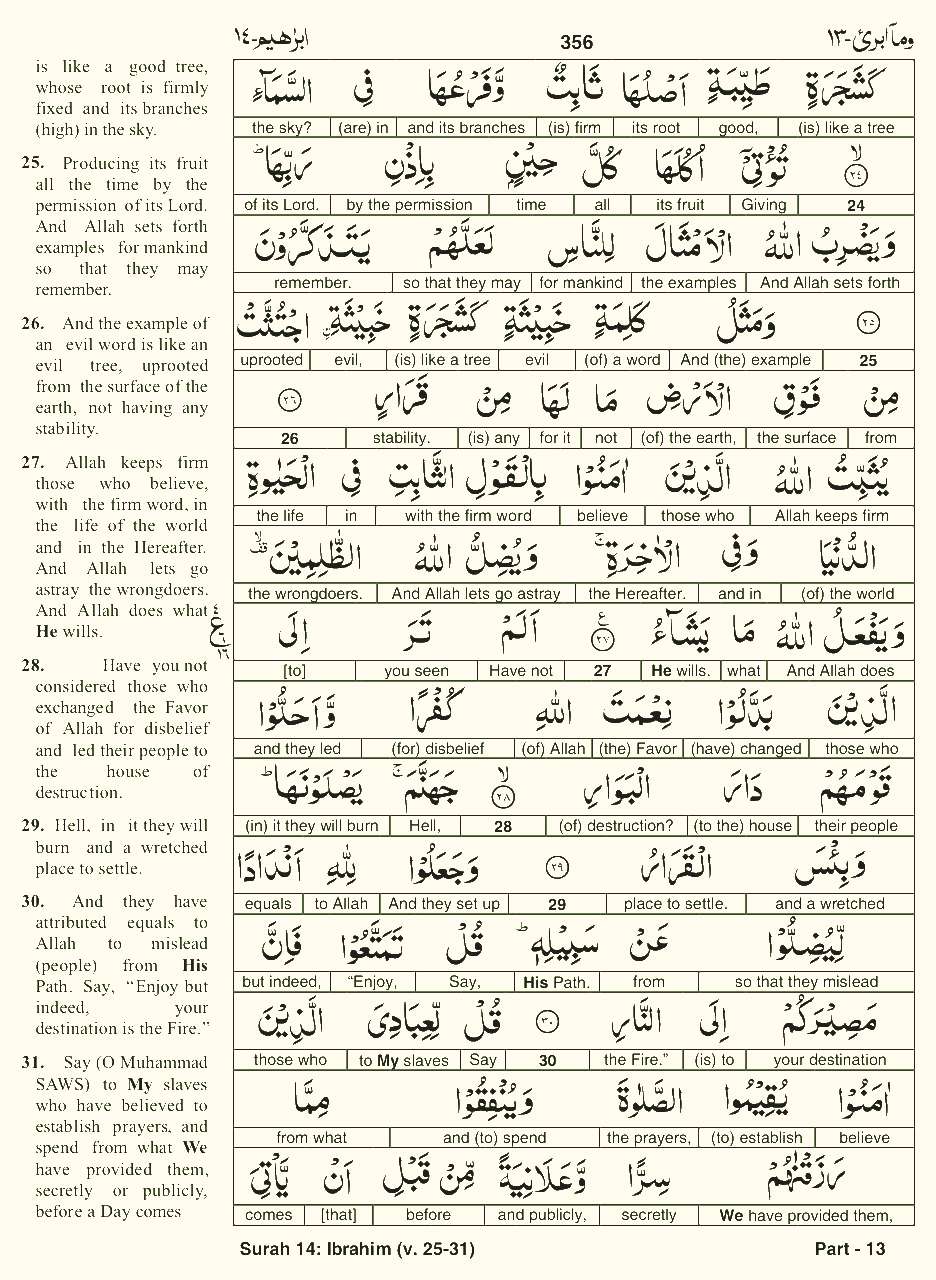 ابرٰهيم-١٤
356
ومآ ابرئ-١٣
is like a good tree,
whose root is firmly
fixed and its branches
(high) in the sky.
25. Producing its fruit
all the time by the
permission of its Lord.
And Allah sets forth
examples for mankind
so that they may
remember.
26. And the example of
an evil word is like an
evil tree, uprooted
from the surface of the
earth, not having any
stability.
27. Allah keeps firm
those who believe,
with the firm word, in
the life of the world
and in the Hereafter.
And Allah lets go
astray the wrongdoers.
And Allah does what
He wills.
28. Have you not
considered those who
exchanged the Favor
of Allah for disbelief
and led their people to
the house of
destruction.
29. Hell, in it they will
burn and a wretched
place to settle.
30. And they have
attributed equals to
Allah to mislead
(people) from His
Path. Say, “Enjoy but
indeed, your
destination is the Fire.”
31. Say (O Muhammad
SAWS) to My slaves
who have believed to
establish prayers, and
spend from what We
have provided them,
secretly or publicly,
before a Day comes
كَشَجَرَةٍ طَيِّبَةٍ اَصْلُهَا ثَابِتٌ وَّفَرْعُهَا فِي السَّمَآءِ
the sky? (are) in and its branches (is) firm its root good, (is) like a tree
ۙ‏﴿٢٤﴾ تُؤْتِيْٓ اُكُلَهَا كُلَّ حِيْنٍۭ بِاِذْنِ رَبِّهَا ؕ
of its Lord. by the permission time all its fruit Giving 24
وَيَضْرِبُ اللّٰهُ الْاَمْثَالَ لِلنَّاسِ لَعَلَّهُمْ يَتَذَكَّرُوْنَ
remember. so that they may for mankind the examples And Allah sets forth
﴿٢٥﴾ وَمَثَلُ كَلِمَةٍ خَبِيْثَةٍ كَشَجَرَةٍ خَبِيْثَةِۨ اجْتُثَّتْ
uprooted evil, (is) like a tree evil (of) a word And (the) example 25
مِنْ فَوْقِ الْاَرْضِ مَا لَهَا مِنْ قَرَارٍ ﴿٢٦﴾
26 stability. (is) any for it not (of) the earth, the surface from
يُثَبِّتُ اللّٰهُ الَّذِيْنَ اٰمَنُوْا بِالْقَوْلِ الثَّابِتِ فِي الْحَيٰوةِ
the life in with the firm word believe those who Allah keeps firm
الدُّنْيَا وَفِي الْاٰخِرَةِ ۚ وَيُضِلُّ اللّٰهُ الظّٰلِمِيْنَ ۙ قف
the wrongdoers. And Allah lets go astray the Hereafter. and in (of) the world
وَيَفْعَلُ اللّٰهُ مَا يَشَآءُ ﴿٢٧﴾ اَلَمْ تَرَ اِلَى
[to] you seen Have not 27 He wills. what And Allah does
الَّذِيْنَ بَدَّلُوْا نِعْمَتَ اللّٰهِ كُفْرًا وَّاَحَلُّوْا
and they led (for) disbelief (of) Allah (the) Favor (have) changed those who
قَوْمَهُمْ دَارَ الْبَوَارِ ۙ﴿٢٨﴾ جَهَنَّمَ ۚ يَصْلَوْنَهَا ؕ
(in) it they will burn Hell, 28 (of) destruction? (to the) house their people
وَبِئْسَ الْقَرَارُ ﴿٢٩﴾ وَجَعَلُوْا لِلّٰهِ اَنْدَادًا
equals to Allah And they set up 29 place to settle. and a wretched
لِّيُضِلُّوْا عَنْ سَبِيْلِهٖ ؕ قُلْ تَمَتَّعُوْا فَاِنَّ
but indeed, “Enjoy, Say, His Path. from so that they mislead
مَصِيْرَكُمْ اِلَى النَّارِ ﴿٣٠﴾ قُلْ لِّعِبَادِيَ الَّذِيْنَ
those who to My slaves Say 30 the Fire.” (is) to your destination
اٰمَنُوْا يُقِيْمُوا الصَّلٰوةَ وَيُنْفِقُوْا مِمَّا
from what and (to) spend the prayers, (to) establish believe
رَزَقْنٰهُمْ سِرًّا وَّعَلَانِيَةً مِّنْ قَبْلِ اَنْ يَّاْتِيَ
comes [that] before and publicly, secretly We have provided them,
Surah 14: Ibrahim (v. 25-31)
Part - 13